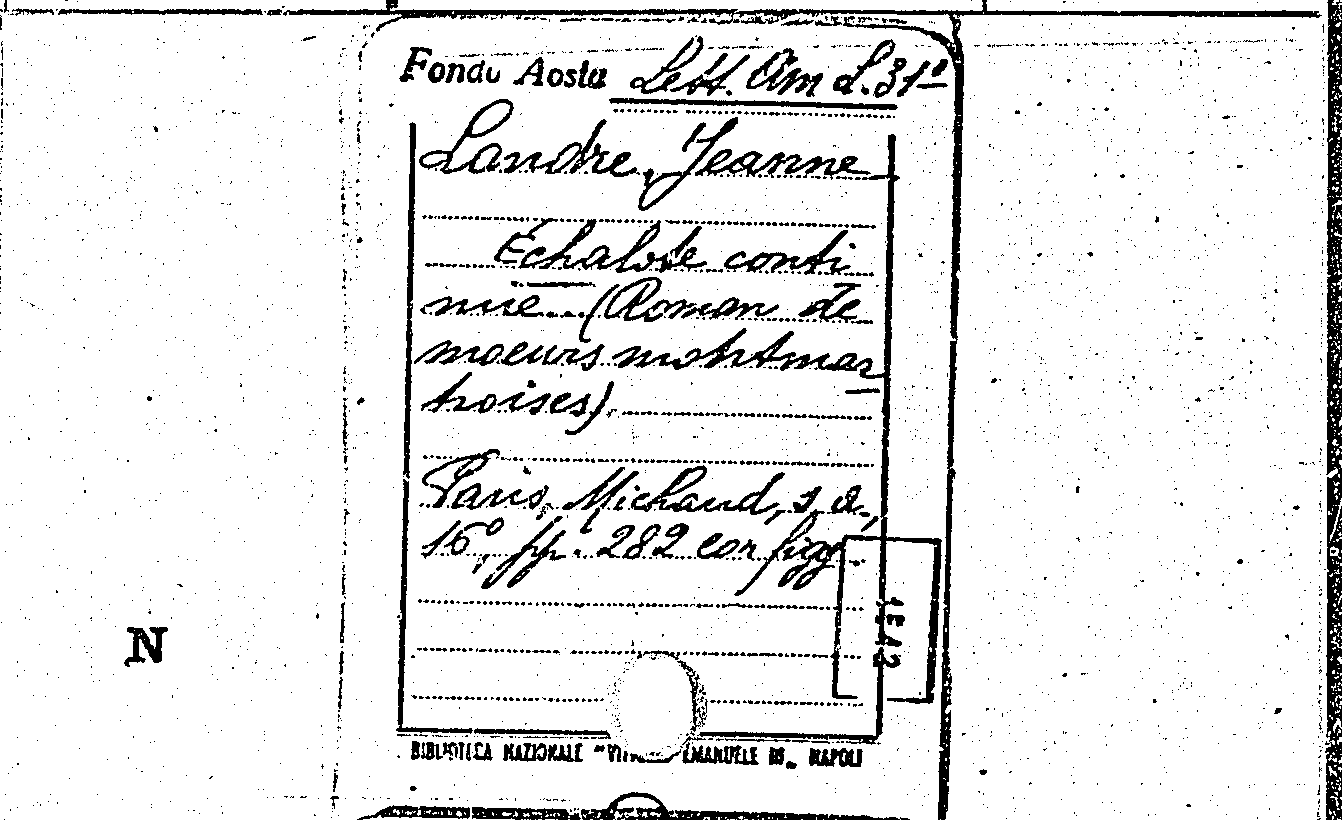 Fondo Aosta Lett. Am L. 31º
Landre, Jeanne
Echalote conti
nue... (Roman de
moeurs montmar
troises).
Paris, Michaud, s. a.,
16º, pp. 282 con figg.
N
BIBLIOTECA NAZIONALE "VITT EMANUELE III" NAPOLI